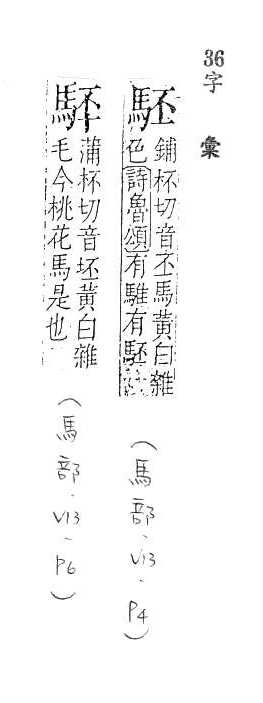 36字彙
駓
鋪杯切音丕馬黃白雜
色詩魯頌有騅有駓
(馬部.V13.P4)
蒲杯切音坯黃白雜
毛今桃花馬是也
(馬部.V13.P6)